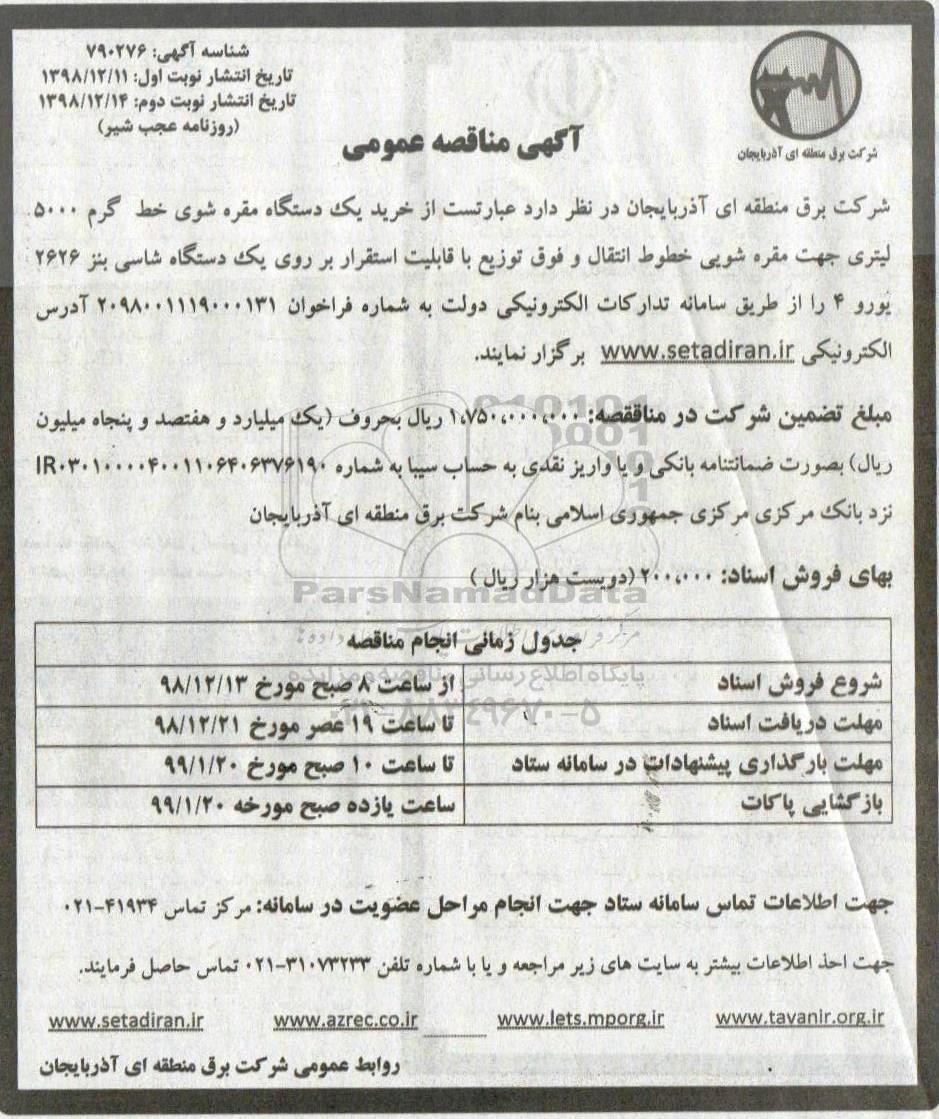 شناسه آگهی: ۷۹۰۲۷۶
تاریخ انتشار نوبت اول: ۱۳۹۸/۱۲/۱۱
تاریخ انتشار نوبت دوم: ۱۳۹۸/۱۲/۱۴
(روزنامه عجب شیر)
شرکت برق منطقه ای آذربایجان
آگهی مناقصه عمومی
شرکت برق منطقه ای آذربایجان در نظر دارد عبارتست از خرید یک دستگاه مقره شوی خط گرم ۵۰۰۰
لیتری جهت مقره شویی خطوط انتقال و فوق توزیع با قابلیت استقرار بر روی یک دستگاه شاسی بنز ۲۶۲۶
یورو ۴ را از طریق سامانه تدارکات الکترونیکی دولت به شماره فراخوان ۲۰۹۸۰۰۱۱۱۹۰۰۰۱۳۱ آدرس
الکترونیکی www.setadiran.ir برگزار نمایند.
مبلغ تضمین شرکت در مناققصه: ۱،۷۵۰،۰۰۰،۰۰۰ ریال بحروف (یک میلیارد و هفتصد و پنجاه میلیون
ریال) بصورت ضمانتنامه بانکی و یا واریز نقدی به حساب سیبا به شماره IR۰۳۰۱۰۰۰۰۴۰۰۱۱۰۶۴۰۶۳۷۶۱۹۰
نزد بانک مرکزی مرکزی جمهوری اسلامی بنام شرکت برق منطقه ای آذربایجان
بهای فروش اسناد: ۲۰۰،۰۰۰ (دویست هزار ریال )
ParsNamadData
جدول زمانی انجام مناقصه
پایگاه اطلاع رسانی مناقصه و مزایده
شروع فروش اسناد از ساعت ۸ صبح مورخ ۹۸/۱۲/۱۳
۰۲۱-۸۸۳۴۹۶۷۰-۵
مهلت دریافت اسناد تا ساعت ۱۹ عصر مورخ ۹۸/۱۲/۲۱
مهلت بارگذاری پیشنهادات در سامانه ستاد تا ساعت ۱۰ صبح مورخ ۹۹/۱/۲۰
بازگشایی پاکات ساعت یازده صبح مورخه ۹۹/۱/۲۰
جهت اطلاعات تماس سامانه ستاد جهت انجام مراحل عضویت در سامانه: مرکز تماس ۴۱۹۳۴-۰۲۱
جهت اخذ اطلاعات بیشتر به سایت های زیر مراجعه و یا با شماره تلفن ۳۱۰۷۳۲۳۳-۰۲۱ تماس حاصل فرمایند.
www.tavanir.org.ir www.lets.mporg.ir www.azrec.co.ir www.setadiran.ir
روابط عمومی شرکت برق منطقه ای آذربایجان